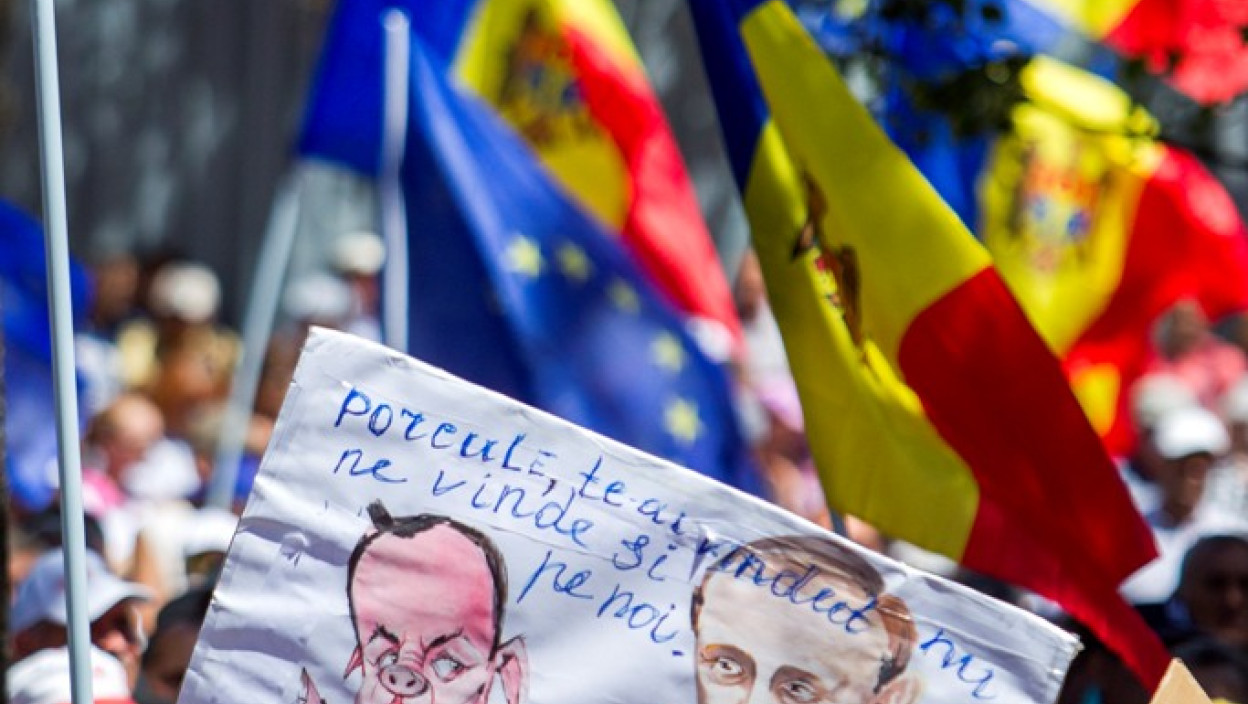 porcule, te-ai vindut nu
ne vinde si
pe noi.